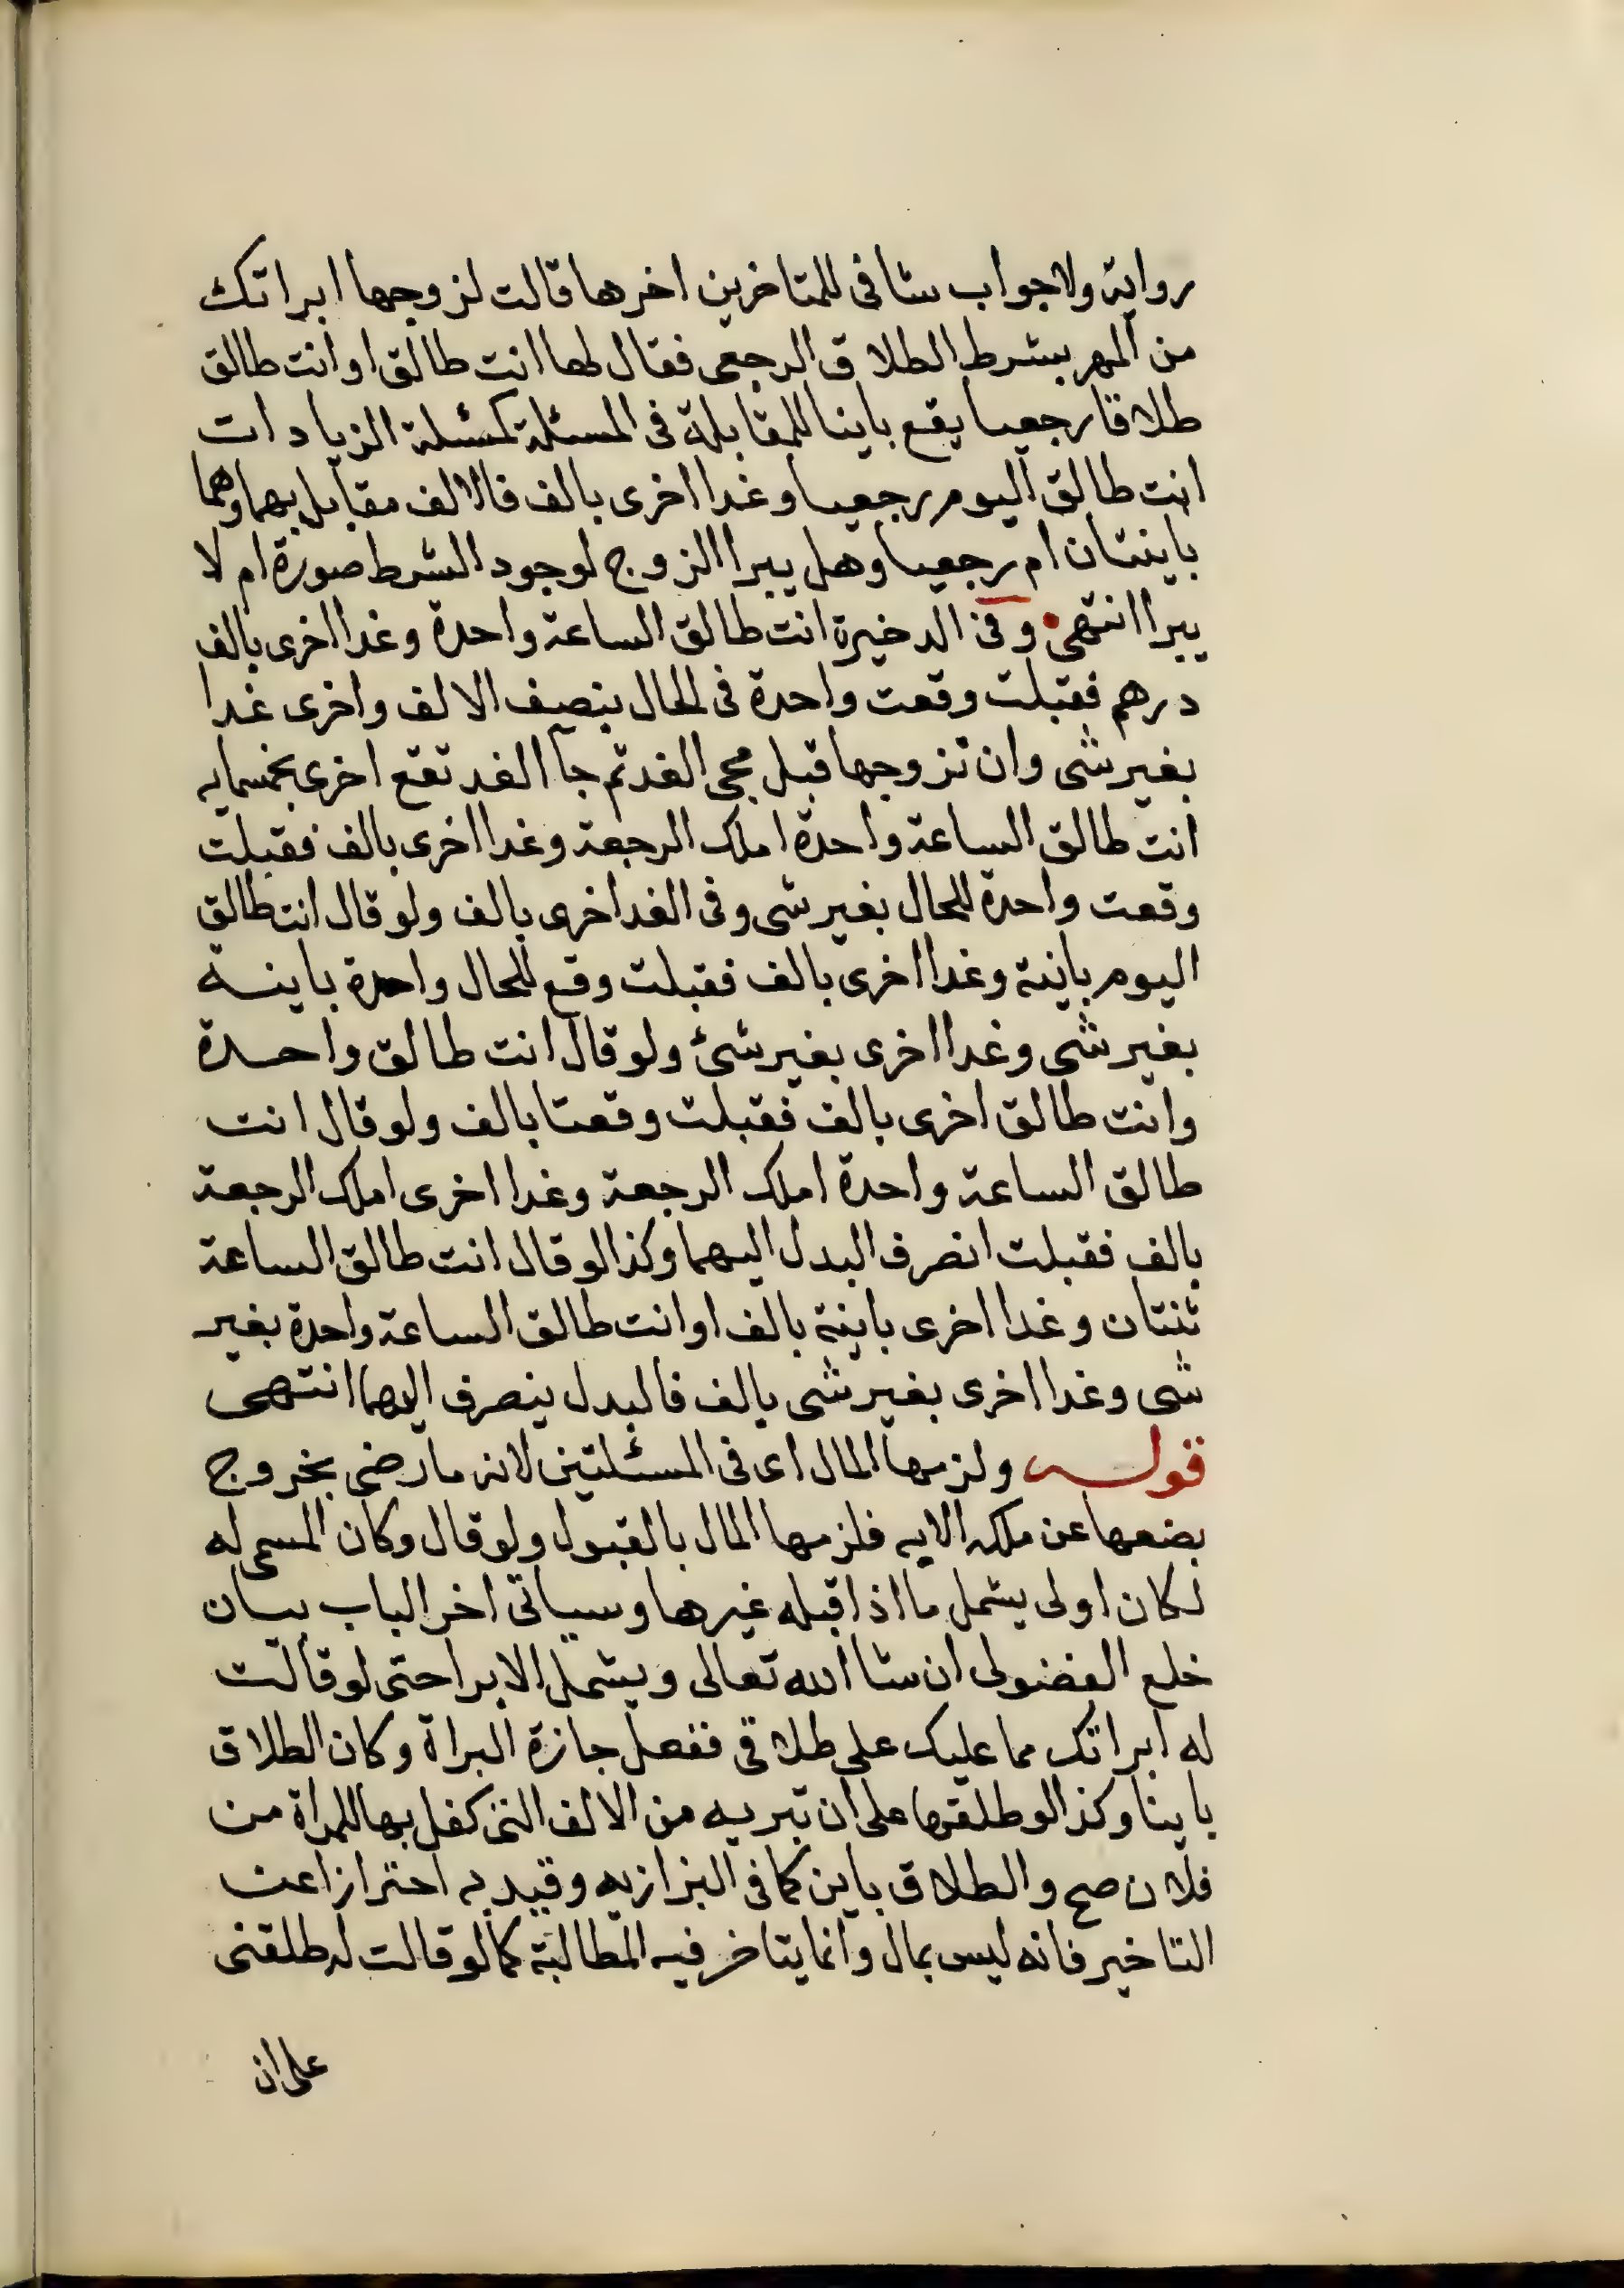 رواية ولا جواب شافى للمتاخرين اخرها قالت لزوجها ابراتك
من المهر بشرط الطلاق الرجعى فقال لها انت طالق او انت طالق
طلاقا رجعيا يقع باينا للمقابلة فى المسئلة كمسئلة الزيادات
انت طالق اليوم رجعيا وغدا اخرى بالف فالالف مقابل بهما وهما
باينتان ام رجعيا وهل يبرا الزوج لوجود الشرط صورة ام لا
يبرا انتهى وفى الدخيرة انت طالق الساعة واحدة وغدا اخرى بالف
درهم فقبلت وقعت واحدة فى الحال بنصف الالف واخرى غدا
بغير شى وان تزوجها قبل مجى الغد ثم جا الغد تقع اخرى بخمسمايه
انت طالق الساعة واحدة املك الرجعة وغدا اخرى بالف فقبلت
وقعت واحدة للحال بغير شى وفى الغد اخرى بالف ولو قال انت طالق
اليوم باينة وغدا اخرى بالف فقبلت وقع للحال واحدة باينة
بغير شى وغدا اخرى بغير شئ ولو قال انت طالق واحدة
وانت طالق اخرى بالف فقبلت وقعتا بالف ولو قال انت
طالق الساعة واحدة املك الرجعة وغدا اخرى املك الرجعة
بالف فقبلت انصرف البدل اليهما وكذا لو قال انت طالق الساعة
ثنتان وغدا اخرى باينة بالف او انت طالق الساعة واحدة بغير
شى وغدا اخرى بغير شى بالف فالبدل ينصرف اليهما انتهى
قوله ولزمها المال اى فى المسئلتين لانه ما رضى بخروج
بضعها عن ملكه الا به فلزمها المال بالقبول ولو قال وكان المسمى له
لكان اولى يشمل ما اذا قبله غيرها وسياتى اخر الباب بيان
خلع الفضولى ان شا الله تعالى ويشمل الابرا حتى لو قالت
له ابراتك مما عليك على طلاقى ففعل جازة البراة وكان الطلاق
باينا وكذا لو طلقها على ان تبريه من الالف التى كفل بها للمراة من
فلان صح والطلاق باين كما فى البزازيه وقيد به احترازا عن
التاخير فانه ليس بمال وانما يتاخر فيه المطالبة كما لو قالت له طلقنى
على ان